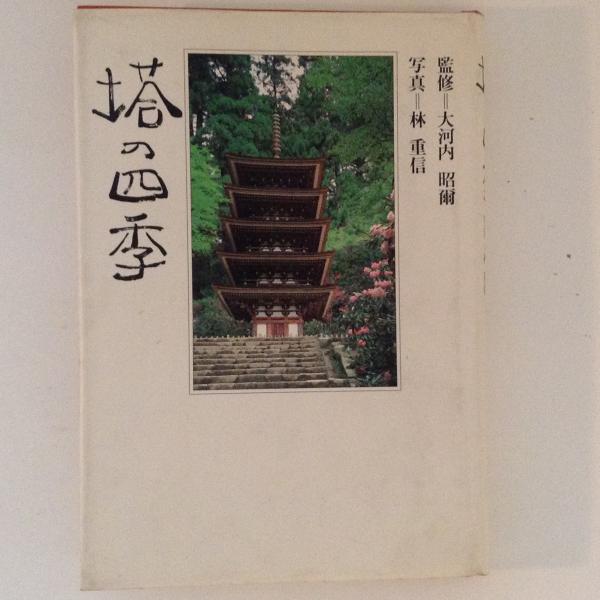 塔の四季
監修＝大河内 昭爾
写真＝林 重信